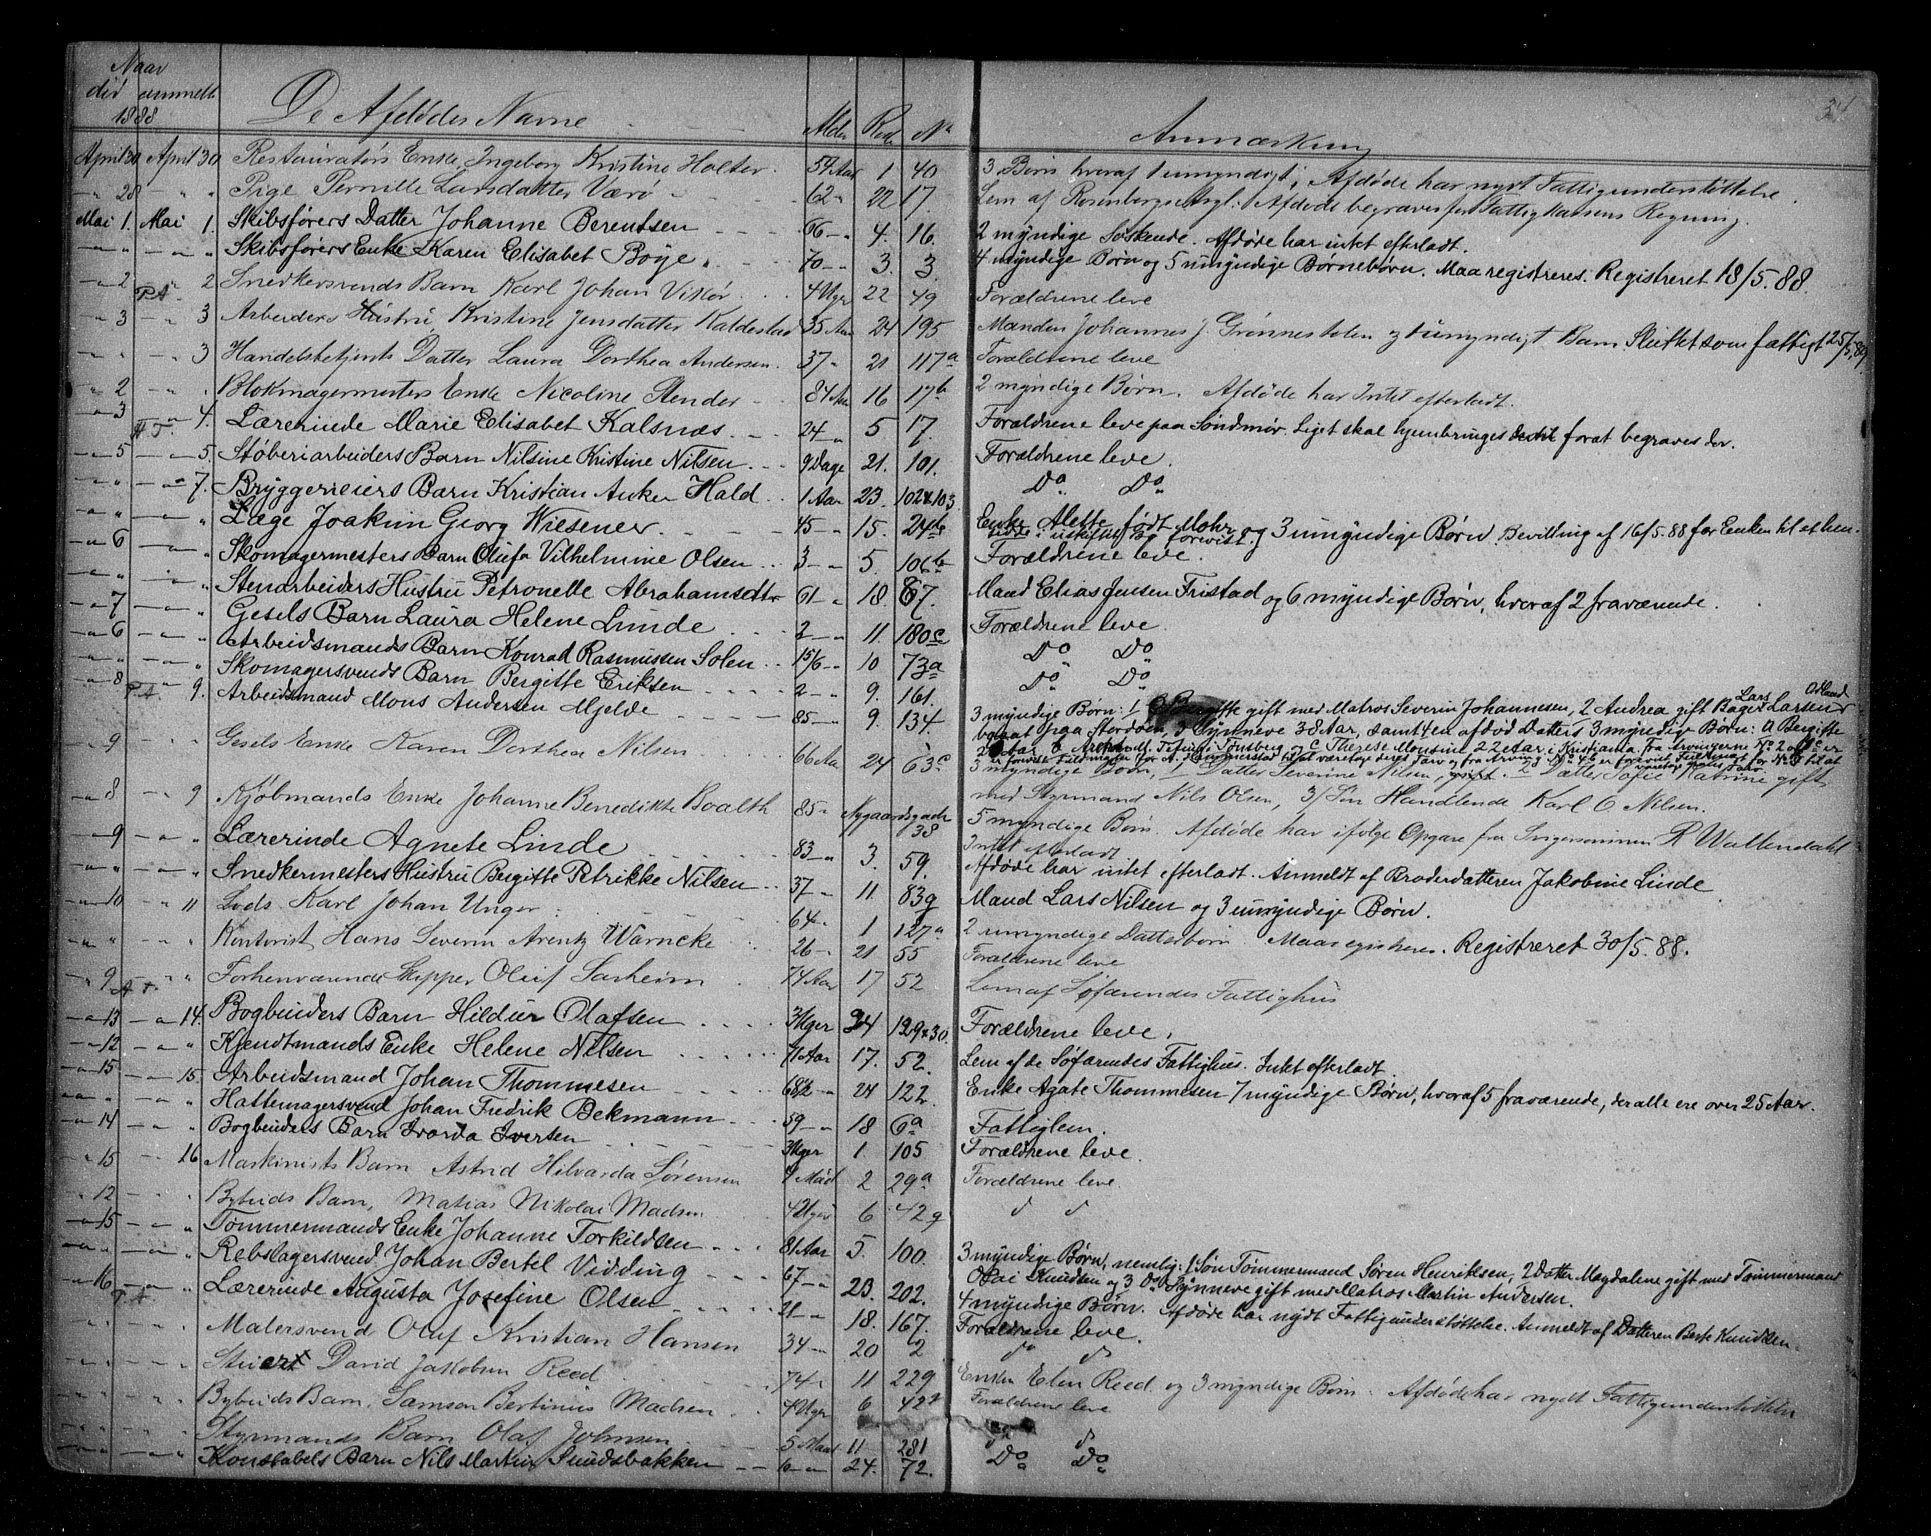 34
Naar
død anmeldt
1888
De Afdødes Navne Alder Rode No Anmærkning
April 30 April 30 Restauratørs Enke Ingeborg Kristine Holter 54 Aar 1 40 3 Børn hvoraf 1 umyndigt, Afdøde har nydt Fattigunderstøttelse.
" 28 " " Pige Pernille Larsdatter Værø 62 " 22 17. Lem af Rosenbergs Asyl. Afdøde begraves for Fattigkassens Regning.
Mai 1. Mai 1. Skibsførers Datter Johanne Berentsen 66 " 4. 16. 2 myndige Søskende. Afdøde har intet efterladt.
" " " " Skibsførers Enke Karen Elisabet Bøye 70 " 3. 3 4 myndige Børn og 5 umyndige Børnebørn. Maa registreres. Registreret 18/5. 88.
" 2 P.A. " 2 Snedkersvends Barn Karl Johan Vikør 4 Uger 22 49 Forældrene leve
" 3 " 3 Arbeiders Hustru Kristine Jensdatter Kaldestad 35 Aar 24 195 Manden Johannes J. Grønnestølen og 1 umyndigt Barn Sluttet som fattigt 25/5. 89
" " " 3 Handelsbetjents Datter Laura Dorthea Andersen. 37 " 21 117a Forældrene leve
" 2 " " Blokmagermesters Enke Nicoline Stender 84 Aar 16 17b 2 myndige Børn. Afdøde har Intet efterladt.
" 3 " 4. Lærerinde Marie Elisabet Kalsnæs 24 " 5 17. Forældrene leve paa Søndmør. Liget skal hjembringes dertil forat begraves der.
" 5 " 5. Støberiarbeiders Barn Nilsine Kristine Nilsen 9 Dage 21. 101. Forældrene leve.
" " " 7. Bryggerieiers Barn Kristian Anker Hald 1 Aar 23. 102 & 103 Do Do
" " " " Læge Joakim Georg Wiesener. 45 " 15. 24 Enke Alette født Mohr og 3 umyndige Børn. Bevilling af 16/5. 88 for Enken til at hen-
sidde i uskiftet Bo forevist.
" 6 " " Skomagermesters Barn Olufa Vilhelmine Olsen 3 " 5. 106b Forældrene leve.
" " " " Stenarbeiders Hustru Petronelle Abrahamsdtr 61 " 18 67. Mand Elias Jensen Fristad og 6 myndige Børn, hvoraf 2 fraværende.
" 7 " " Gesels Barn Laura Helene Linde 2 " 11. 180c Forældrene leve
" 6 " " Arbeidsmands Barn Konrad Rasmussen Solen 15/6 " 10 73a Do Do
" " " " Skomagersvends Barn Bergitte Eriksen 2 " 9. 161. Do Do
" 8 P.A. 9. Arbeidsmand Mons Andersen Mjelde 85 " 9. 134. 3 myndige Børn: 1 gift med Matros Severin Johannesen, 2 Andrea gift Bager Lars Larsen Odland
bosat paa Stordøen, 3 Synneve 38 Aar, samt 4 en afdød Datters 3 myndige Børn: a Bergitte
" 9 Gesels Enke Karen Dorthea Nilsen 66 Aar 24 63c 3 myndige Børn, 1 Datter Severine Nilsen, ugift. 2 Datter Sofie Katrine gift
med Styrmand Nils Olsen, 3/ Søn Handlende Karl O Nilsen.
" 8 " 9 Kjøbmands Enke Johanne Benedikte Boalth 85 " Nygaardsgade 38 5 myndige Børn. Afdøde har ifølge Opgave fra Svigersønnen R Wallendahl
Intet efterladt
" 9 " " Lærerinde Agnete Linde 83 " 3. 59. Afdøde har intet efterladt. Anmeldt af Broderdatteren Jakobine Linde
" " " " Snedkermesters Hustru Bergitte Petrikke Nilsen 37 " 11 83g Mand Lars Nilsen og 3 umyndige Børn.
" 10 " 11 Lods Karl Johan Unger 64 " 1 127a 2 umyndige Datterbørn Maa registreres. Registreret 30/5. 88.
" " " " Kontorist Hans Severin Arentz Warncke 26 " 21 55 Forældrene leve
" 9 " " Forhenværende Skipper Oluf Sarheim 74 Aar 17 52 Lem af Søfarendes Fattighus
" 13 " 14. Bogbinders Barn Hildur Olafsen 3 Uger 24 129 & 30. Forældrene leve.
" 12 " " Kjendtmands Enke Helene Nilsen 71 Aar 17. 52. Lem af de Søfarendes Fattighus. Intet efterladt.
" 15 " 15. Arbeidsmand Johan Thommesen 68½ " 24 122. Enke Agate Thommesen 7 myndige Børn, hvoraf 5 fraværende, der alle ere over 25 Aar.
" " " " Hattemagersvend Johan Fredrik Bekmann 59 " 18 6a Fattiglem.
" 14 " " Bogbinders Barn Ivarda Iversen 3 Uger 1 105 Forældrene leve.
" 15 " 16 Maskinists Barn Astrid Hilvarda Sørensen 7 Maad 2 29a Forældrene leve
" 12 " " Bybuds Barn, Matias Nikolai Madsen 4 Uger 6 42g
" 15 " " Tømmermands Enke Johanne Torkildsen 81 Aar 5. 100. 3 myndige Børn, nemlig: 1 Søn Tømmermand Søren Henriksen, 2 Datter Magdalene gift med Tømmermand
Knudsen og 3 Do Synneve gift med Matros Martin Andersen.
" " " " Rebslagersvend Johan Bertel Vidding 67 " 23. 202. 4 myndige Børn. Afdøde har nydt Fattigunderstøttelse. Anmeldt af Datteren Berte Knudsen.
" 16 " " Lærerinde Augusta Josefine Olsen 21 " 18. 167. Forældrene leve.
" " Malersvend Oluf Kristian Hansen 34 " 20 2
" " Stuert David Jakobsen Reed 74 " 11 229 Enken Elen Reed og 3 myndige Børn. Afdøde har nydt Fattigunderstøttelse
" " Bybuds Barn, Samson Bertinius Madsen 4 Uger 6 42g Forældrene leve
" " Styrmands Barn Olaf Johnsen 5 Maad 11 281
" " " " Konstabels Barn Nils Martin Sundsbakken 10 " 24. 72. Do Do